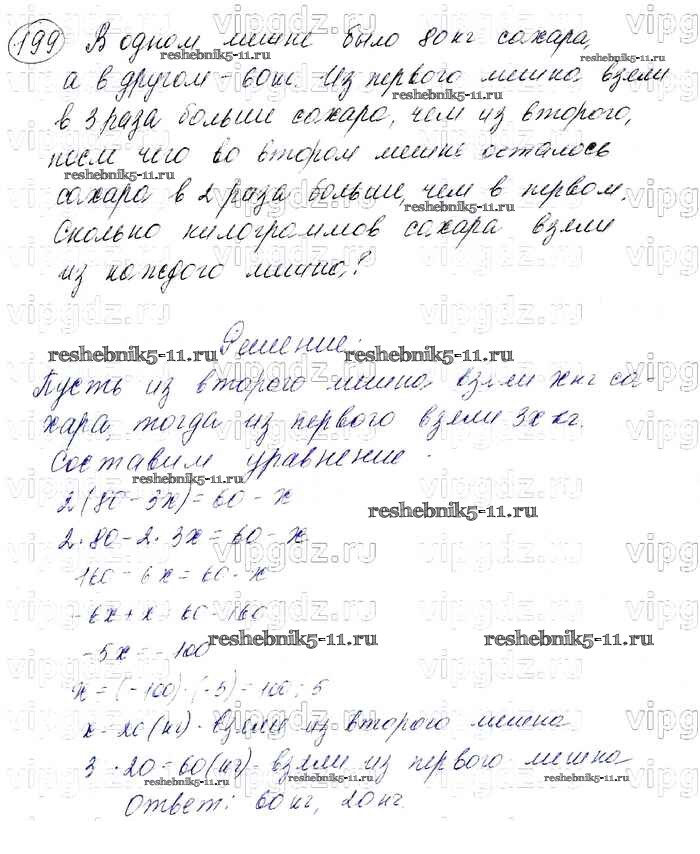 199 В одном мешке было 80 кг сахара,
а в другом - 60 кг. Из первого мешка взяли
в 3 раза больше сахара, чем из второго,
после чего во втором мешке осталось
сахара в 2 раза больше, чем в первом.
Сколько килограммов сахара взяли
из каждого мешка?
Решение:
Пусть из второго мешка взяли x кг са-
хара, тогда из первого взяли 3x кг.
Составим уравнение.
2(80 - 3x) = 60 - x
2·80 - 2·3x = 60 - x
160 - 6x = 60 - x
-6x + x = 60 - 160
-5x = -100
x = (-100) : (-5) = 100 : 5
x = 20 (кг) - взяли из второго мешка
3 · 20 = 60 (кг) - взяли из первого мешка
Ответ: 60 кг, 20 кг.
vipgdz.ru
reshebnik5-11.ru